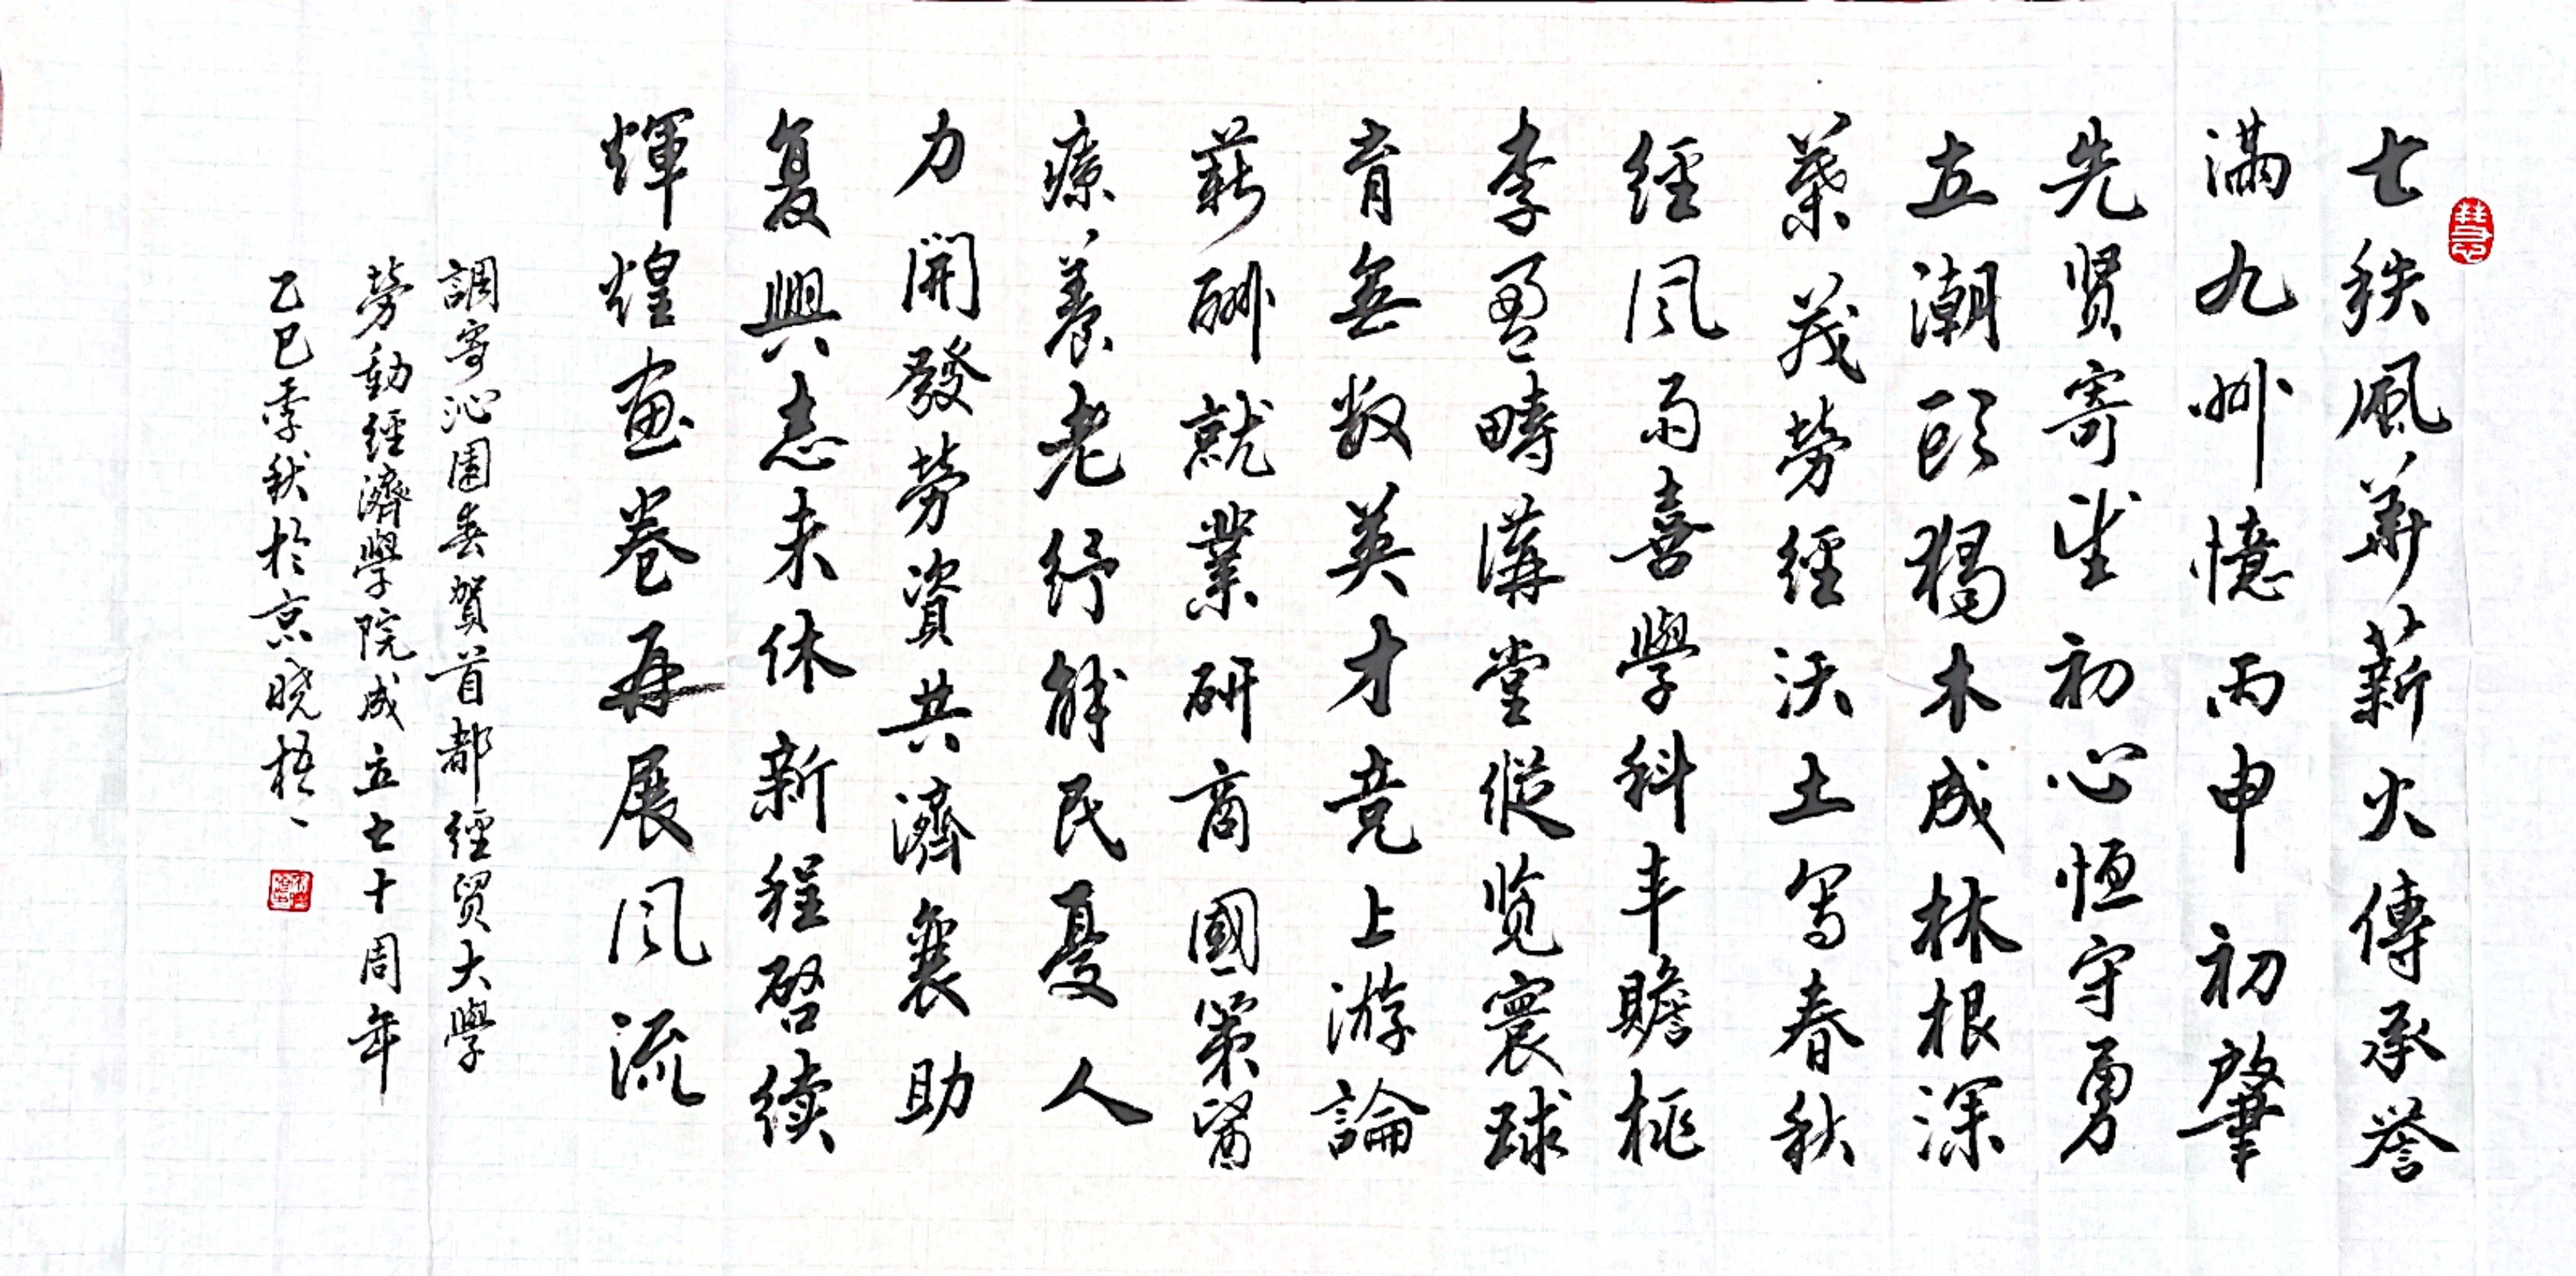 七秩風華薪火傳承譽
滿九州憶丙申初肇
先贤寄望初心恒守勇
立潮頭獨木成林根深
葉茂勞經沃土寫春秋
經风雨喜學科丰贍桃
李盈疇講堂縱览寰球
育無数英才竞上游論
薪酬就業研商國策醫
療養老紓解民憂人
力開發勞資共濟襄助
复興志未休新程啓续
輝煌画卷再展风流
調寄沁園春賀首都經贸大學
勞動經濟學院成立七十周年
乙巳季秋於京晓梧